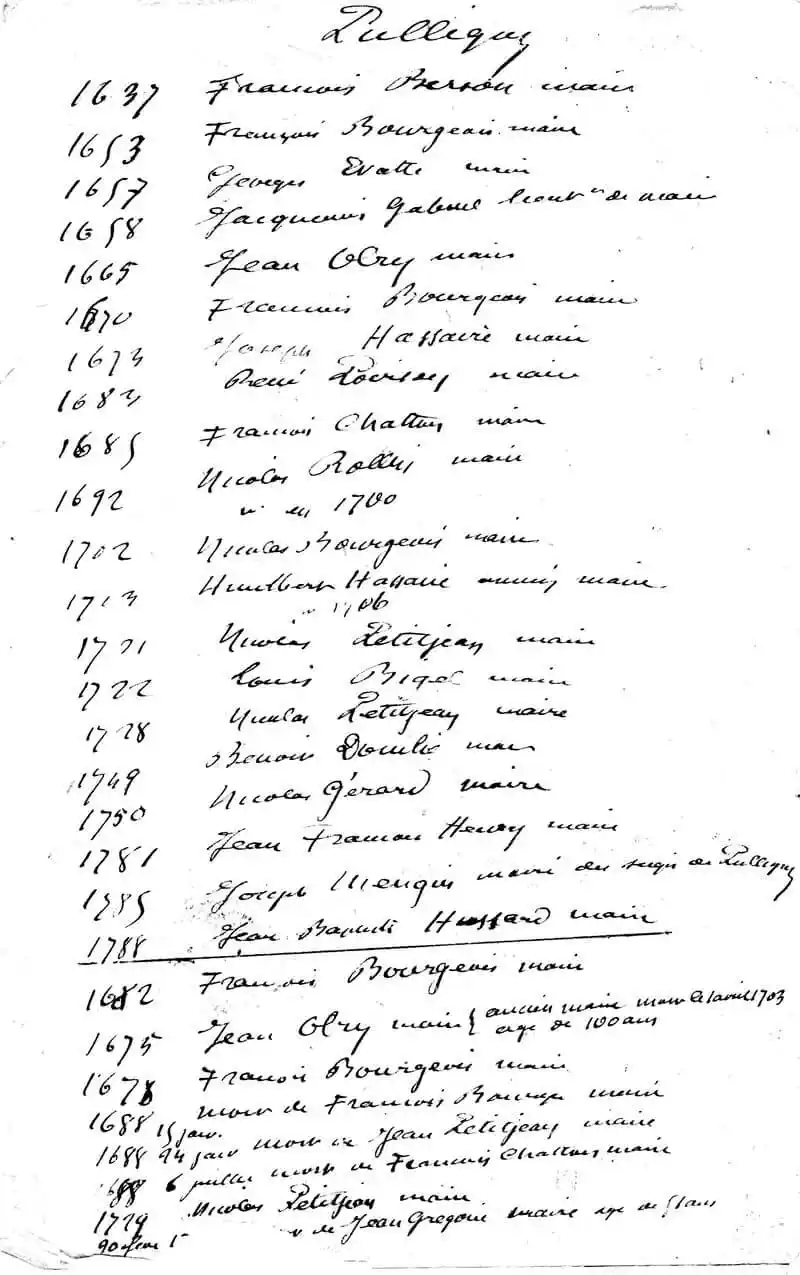 Pulligny
1637 François Berson maire
1653 François Bourgeois maire
1657 Georges Evatte maire
1658 Jacquemin Gabriel lieutn de maire
1665 Jean Olry maire
1670 François Bourgeois maire
1673 Joseph Hassaire maire
1683 René maire
1685 François Chatton maire
1692 Nicolas maire
en 1700
1702 Nicolas Bourgeois maire
1713 Humbert Hassaire ancien maire
1706
1721 Nicolas Petitjean maire
1722 Louis Bigel maire
1728 Nicolas Petitjean maire
1749 Benoit maire
1750 Nicolas Gérard maire
1781 Jean François Henry maire
1785 Joseph Mengin maire des de Pulligny
1788 Jean Baptiste Hussard maire
1682 François Bourgeois maire
1675 Jean Olry maire { ancien maire mort le 1 avril 1703
age de 100 ans
1678 François Bourgeois maire
1688 mort de François Bourgeois maire
15 janv.
1688 24 janv mort de Jean Petitjean maire
1688 6 juillet mort de François Chatton maire
1729 Nicolas Petitjean maire
de Jean Gregoire maire age de 51 ans